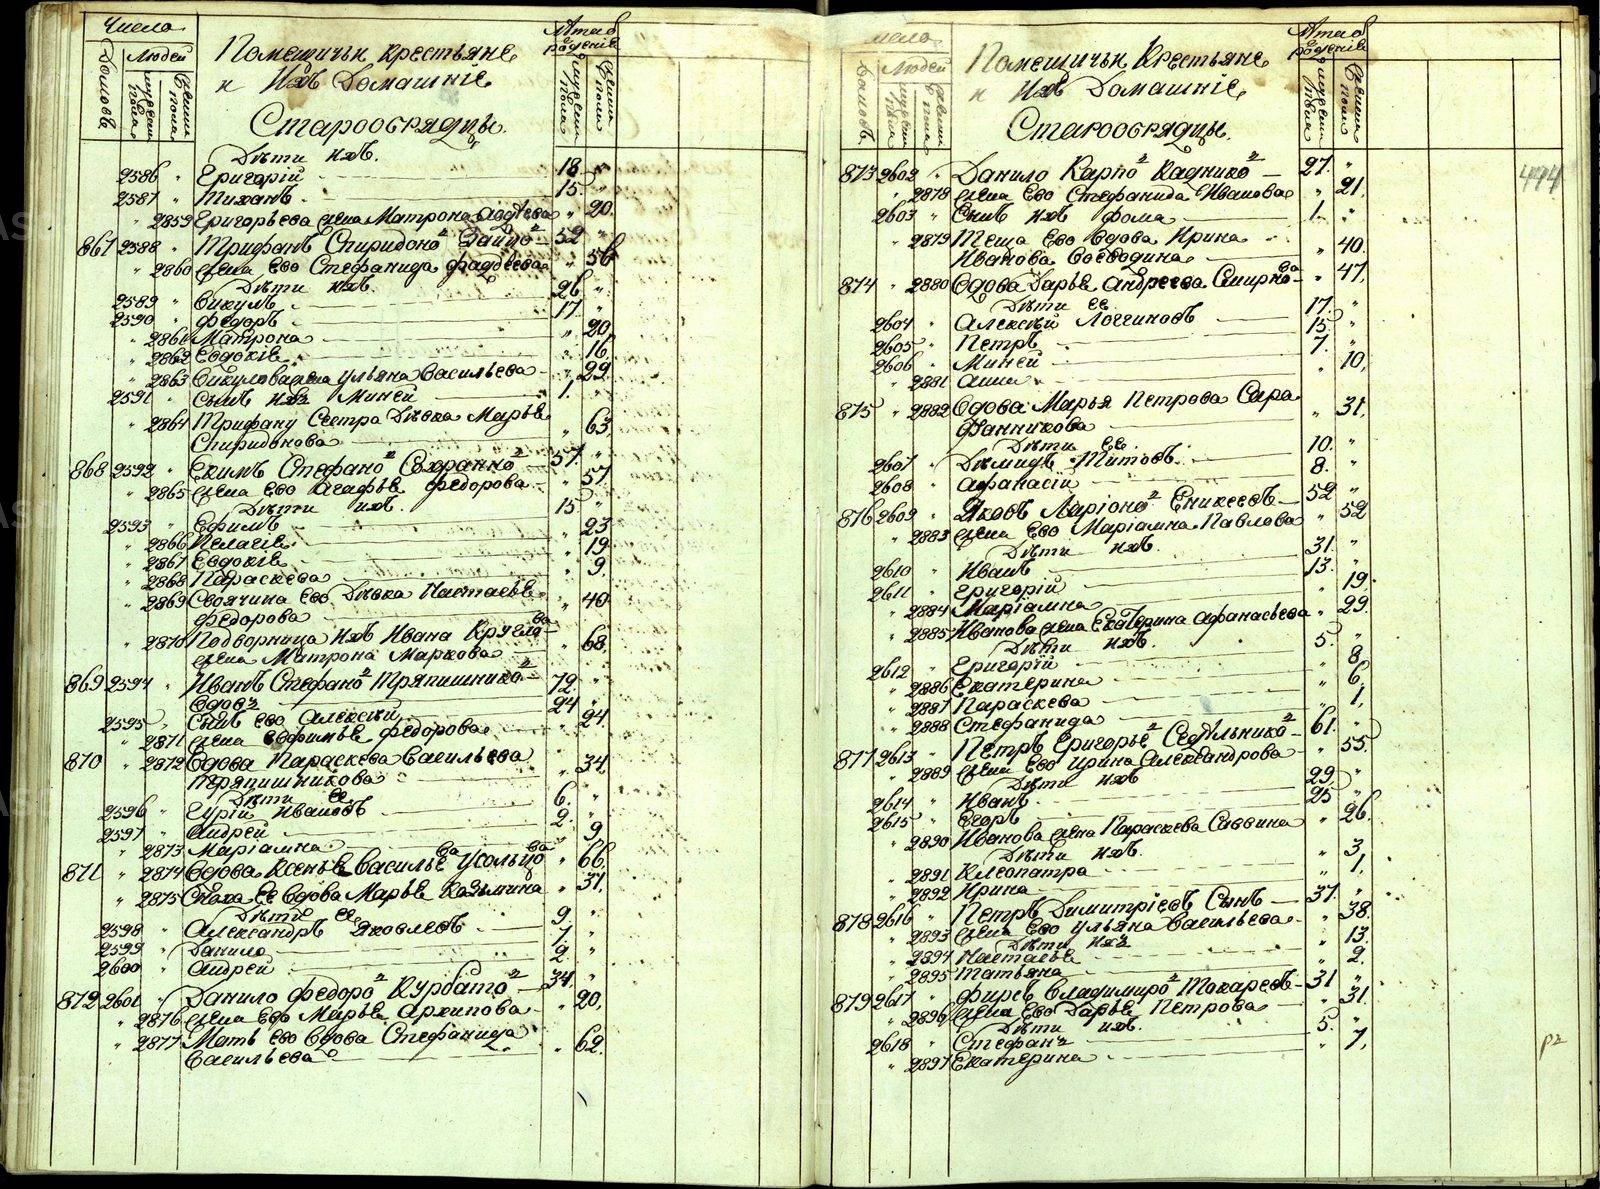 Числа
Домовъ
Людей
мужеска пола
женска пола
Помещичьи крестьяне
и Ихъ Домашніе
Старообрядцы.
Лѣта отъ рожденія
мужеска пола
женска пола
Дѣти ихъ.
2586 " Григорій 18 "
2587 " Тихонъ 15 "
" 2859 Григорьева жена Матрона Фадѣева " 20.
867 2588 " Трифанъ Спиридоновъ 52 "
" 2860 жена Ево Стефанида Фадѣева " 56
Дѣти ихъ.
2589 " Викулъ 26 "
2590 " Федоръ 17 "
" 2861 Матрона " 20
" 2862 Евдокія " 16
" 2863 Викулова жена Ульяна Васильева " 29
2591 " Сынъ ихъ Миней 1. "
" 2864 Трифану Сестра Дѣвка Марья
Спиридонова " 63
868 2592 " Екимъ Стефановъ 57. "
" 2865 жена Ево Агафья Федорова " 57
Дѣти ихъ.
2593 " Ефимъ 15 "
" 2866 Пелагія " 23
" 2867 Евдокія " 19
" 2868 Параскева " 9.
" 2869 Своячина Ево Дѣвка Настасья
Федорова " 40
" 2870 Подворница ихъ Ивана Круглова
жена Матрона Маркова " 68
869 2594 " Иванъ Стефановъ Тряпишниковъ
Вдовъ 72. "
2595 " Сынъ Ево Алексѣй 24 "
" 2871 жена Евфимья Федорова " 24.
870 " 2872 Вдова Параскева Васильева
Тряпишникова " 34
Дѣти Ее
2596 " Гурій Ивановъ 6. "
2597 " Андрей 2. "
" 2873 Маріамна " 9
871 " 2874 Вдова Ксенья Васильева Усольцова " 66
" 2875 Сноха Ее Вдова Марья Козьмина " 31.
Дѣти Ее
2598 " Александръ Яковлевъ 9. "
2599 " Данило 7 "
2600 " Андрей 2 "
872 2601 " Данило Федоровъ Курбатовъ 34 "
" 2876 жена Ево Марья Архипова " 20,
" 2877 Мать Ево Вдова Стефанида
Васильева " 62.
Числа
Домовъ
Людей
мужеска пола
женска пола
Помещичьи Крестьяне
и Ихъ Домашніе
Старообрядцы.
Лѣта отъ рожденія
мужеска пола
женска пола
494
873 2602 " Данило Карповъ Кадниковъ 27. "
" 2878 жена Ево Стефанида Иванова " 21.
2603 " Сынъ ихъ Фома 1. "
" 2879 Теща Ево Вдова Ирина
Иванова Воеводина " 40.
874 " 2880 Вдова Дарья Андреева Смирнова " 47,
Дѣти Ее
2604 " Алексѣй Логгиновъ 17. "
2605 " Петръ 15 "
2606 " Миней 7. "
" 2881 Анна " 10,
875 " 2882 Вдова Марья Петрова Сара
фанникова " 31.
Дѣти Ее.
2607 " Демидъ Титовъ 10. "
2608 " Афанасій 8. "
876 2609 " Яковъ Ларіоновъ Еникеевъ 52 "
" 2883 жена Ево Маріамна Павлова " 52
Дѣти ихъ.
2610 " Иванъ 31. "
2611 " Григорій 13. "
" 2884 Маріамна " 19
" 2885 Иванова жена Екатерина Афанасьева " 29
Дѣти ихъ.
2612 " Григорій 5. "
" 2886 Екатерина " 8
" 2887 Параскева " 6,
" 2888 Стефанида " 1,
877 2613 " Петръ Григорьевъ Седельниковъ 61. "
" 2889 жена Ево Ирина Александрова " 55.
Дѣти ихъ
2614 " Иванъ 29 "
2615 " Егоръ 25 "
" 2890 Иванова жена Параскева Саввина " 26.
Дѣти ихъ.
" 2891 Клеопатра " 3
" 2892 Ирина " 1,
878 2616 " Петръ Димитріевъ Сынъ 37. "
" 2893 жена Ево Ульяна Васильева " 38.
Дѣти ихъ
" 2894 Настасья " 13
" 2895 Татьяна " 2.
879 2617 " Фирсъ Владимировъ Токаревъ 31 "
" 2896 жена Ево Дарья Петрова " 31.
Дѣти ихъ.
2618 " Стефанъ 5. "
" 2897 Екатерина " 7,